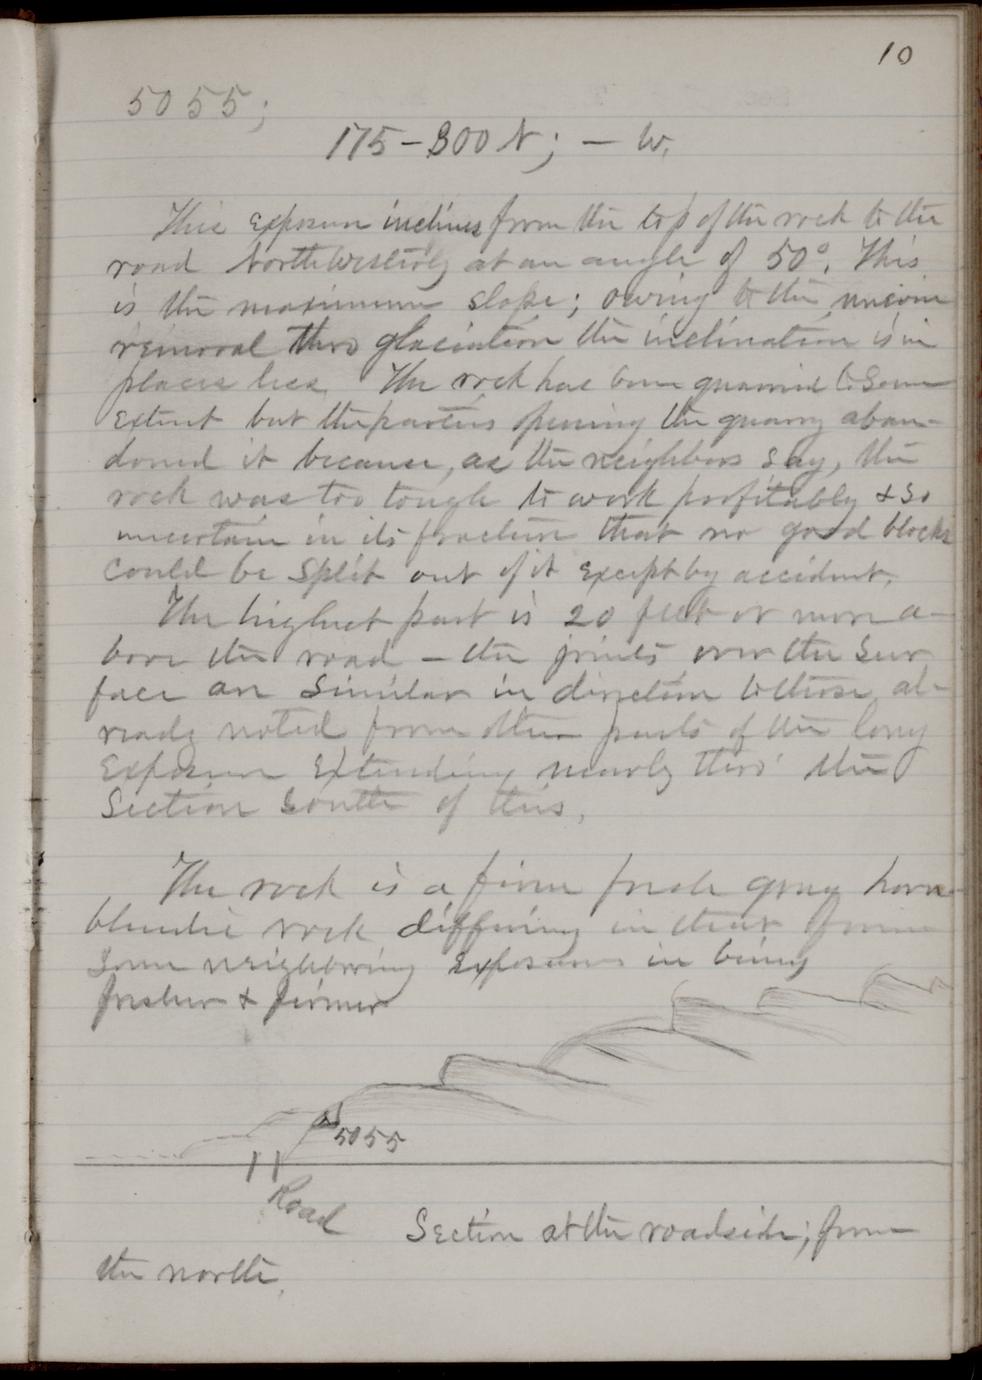 10
5055;
175-300 N; - W.
This exposure inclines from the top of the rock to the
road Northwesterly at an angle of 50°. This
is the maximum slope; owing to the
removal thro glaciation the inclination is in
places less. The rock has been quarried to some
extent but the parties opening the quarry aban-
doned it because, as the neighbors say, the
rock was too tough to work profitably & so
uncertain in its fracture that no good blocks
could be split out of it except by accident.
The highest part is 20 feet or more a-
bove the road - the joints over the sur
face are similar in direction to those al-
ready noted from other parts of the long
exposure extending nearly thro' the
Section South of this.
The rock is a firm fresh gray horn-
blendic rock differing in that from
some neighboring exposures in being
fresher & firmer
5055
Road
Section at the roadside; from
the north.